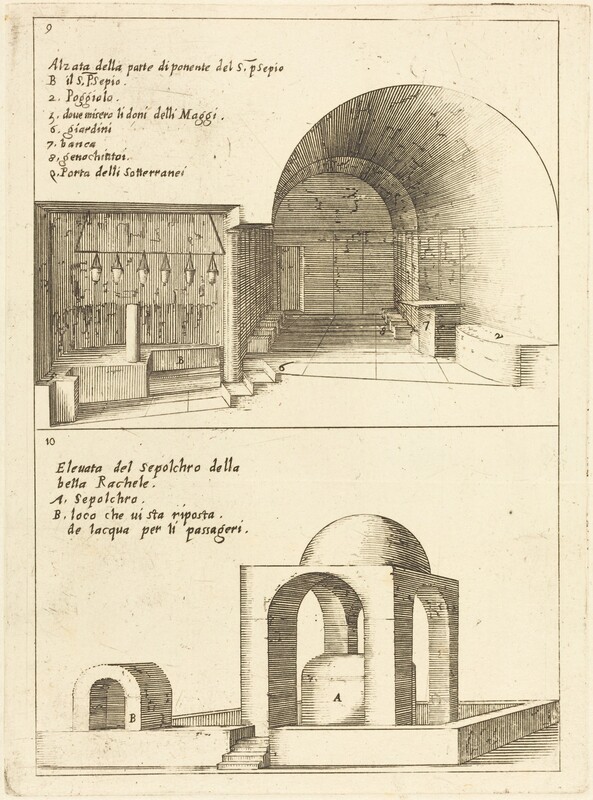 9
Alzata della parte di ponente del S. p̄sepio
B il S. P̄Sepio.
2. Poggiolo.
5. doue misero li doni delli Maggi.
6. giardini
7. banca
8. genochittoi.
9. Porta delli Sotterranei
B
6
8
7
2
10
Eleuata del Sepolchro della
bella Rachele.
A. Sepolchro.
B. loco che ui sta riposta.
de lacqua per li passageri.
A
B